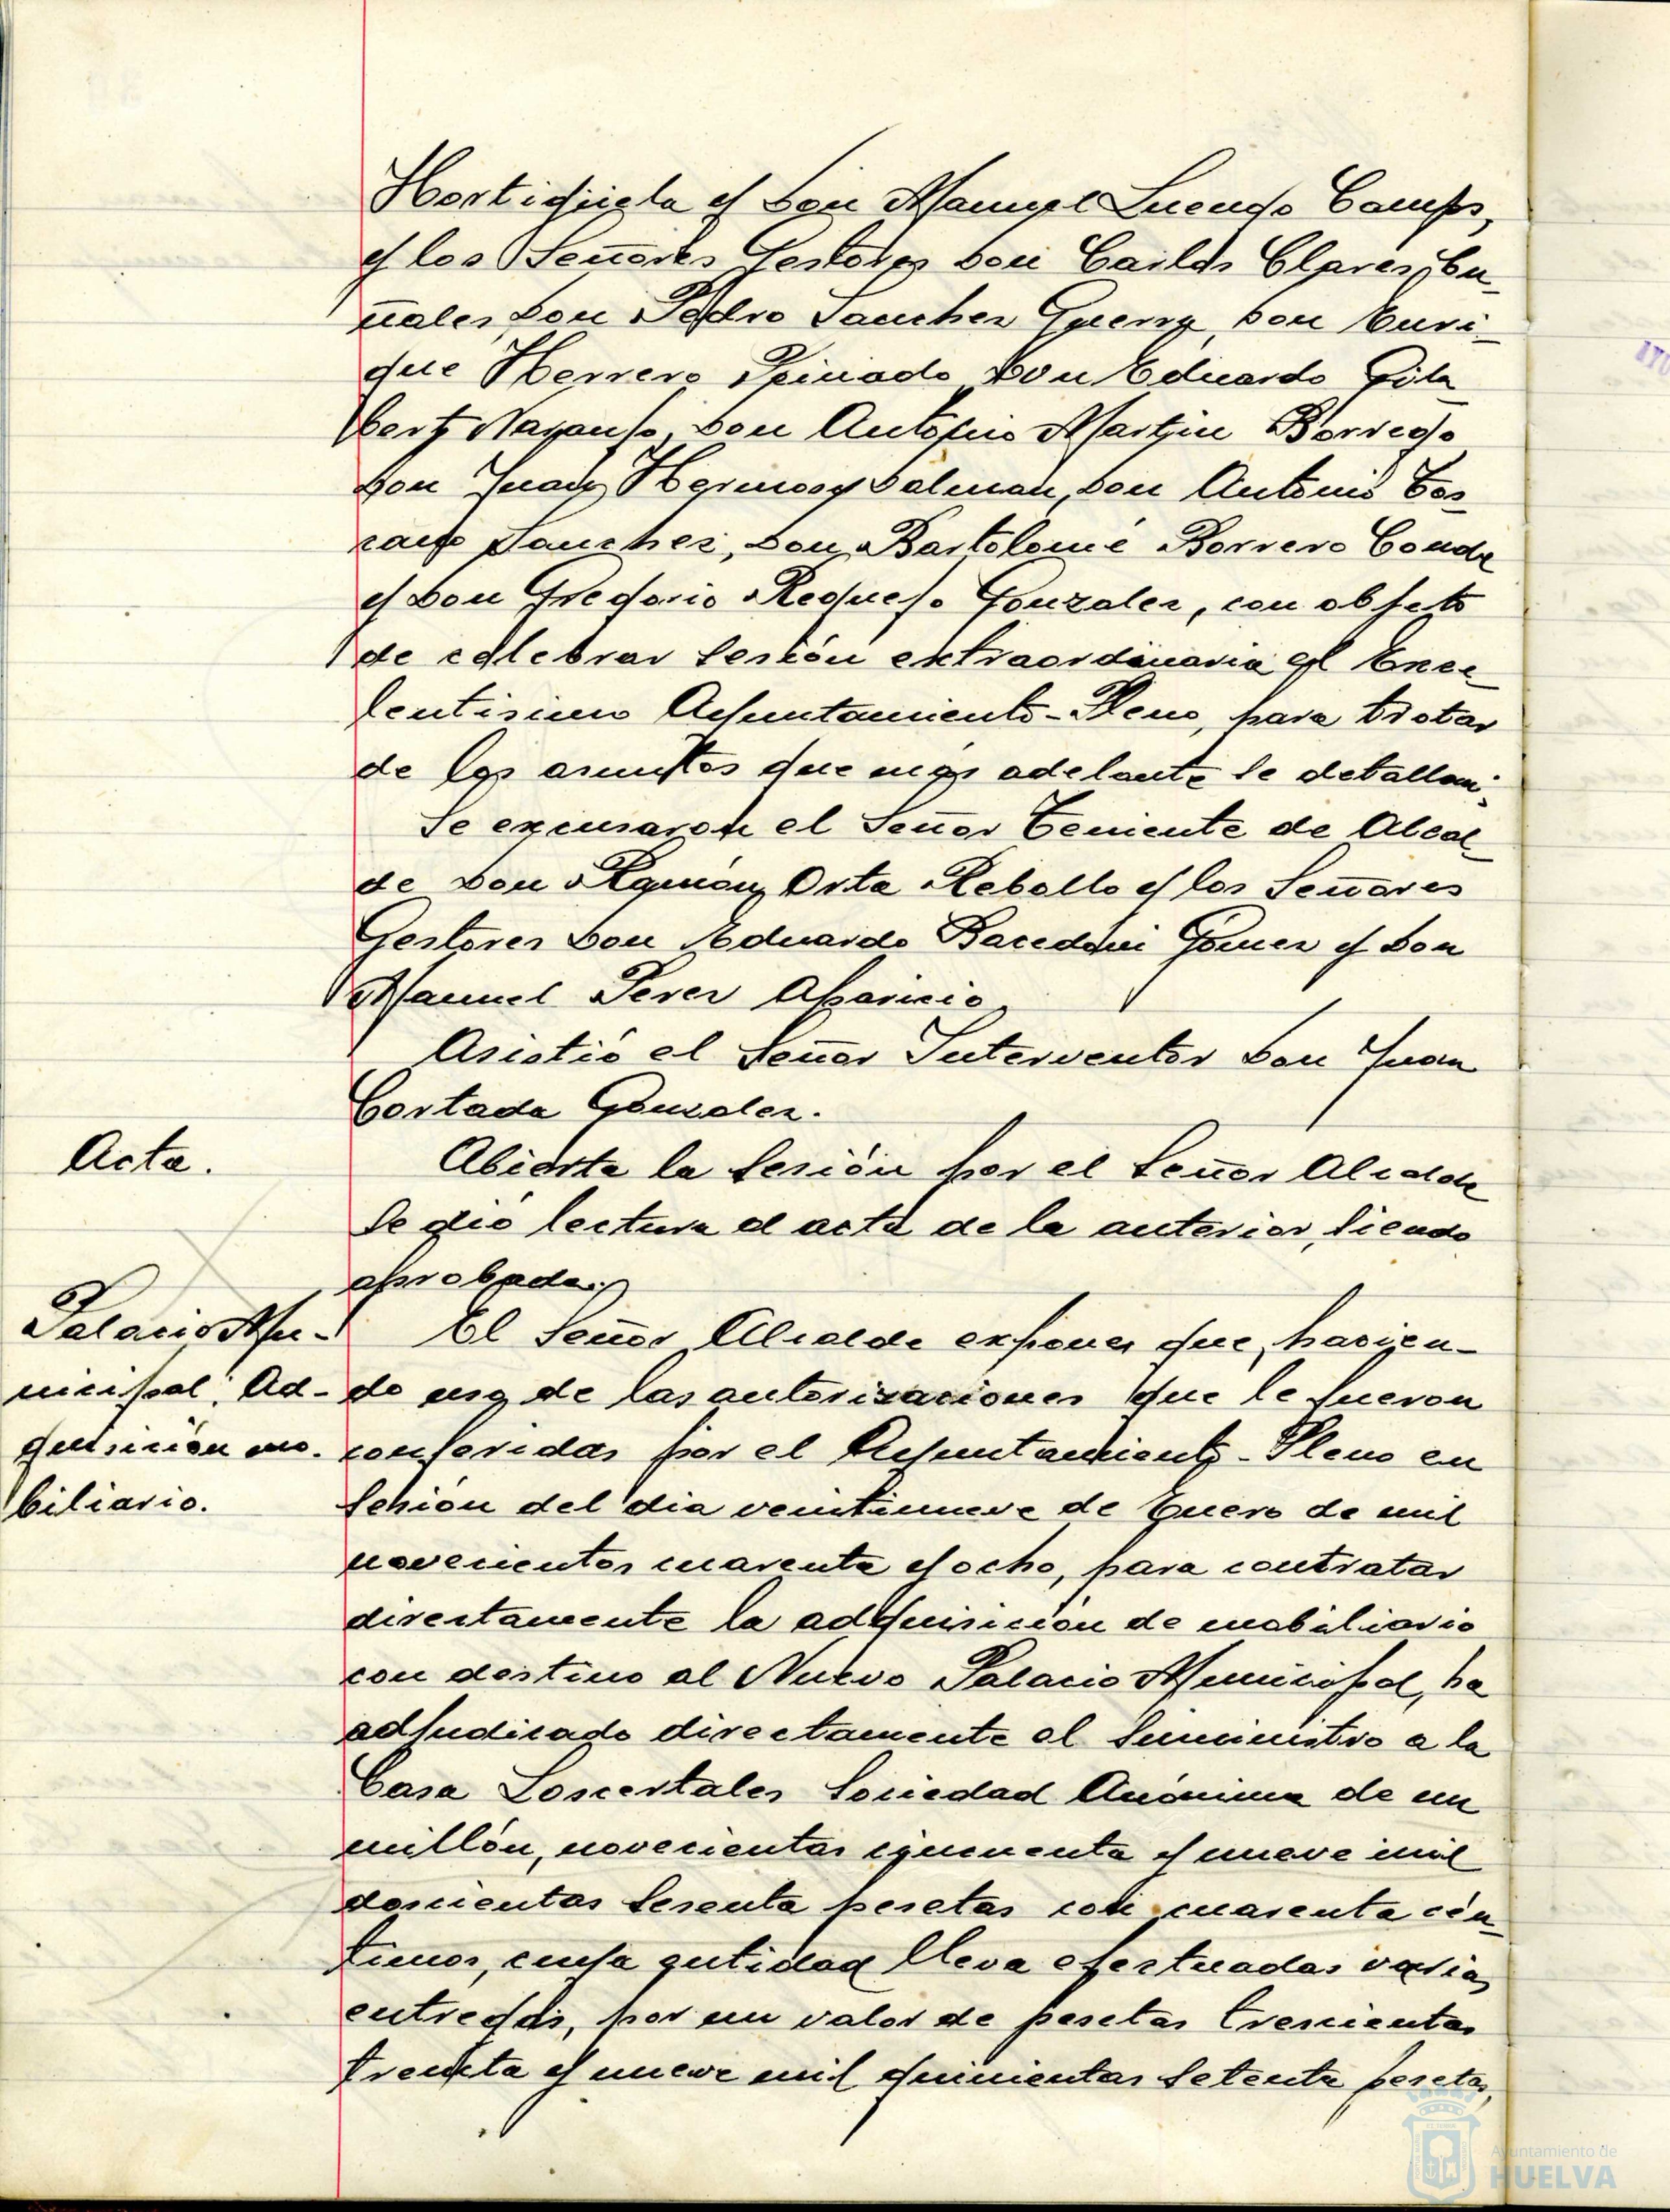 Hortigüela y Don Manuel Luengo Camps,
y los Señores Gestores Don Carlos Clares Bu-
ñales, Don Pedro Sanchez Guerra, Don Enri-
que Herrero Peinado, Don Eduardo Gila
bert Naranjo, Don Antonio Martin Borrego
Don Juan Hermosa Dolman, Don Antonio Tos-
cano Sanchez, Don Bartolomé Borrero Conde
y Don Gregorio Requejo Gonzalez, con objeto
de celebrar sesión extraordinaria el Exce-
lentisimo Ayuntamiento-Pleno, para tratar
de los asuntos que más adelante se detallan.
Se excusaron el Señor Teniente de Alcal-
de Don Ramón Orta Rebollo y los Señores
Gestores Don Eduardo Gómez y Don
Manuel Perez Aparicio.
Asistió el Señor Interventor Don Juan
Cortada Gonzalez.
Acta.
Abierta la sesión por el Señor Alcalde
se dió lectura al acta de la anterior, siendo
aprobada.
Palacio Mu-
nicipal. Ad-
quisición mo-
biliario.
El Señor Alcalde expone que, hacien-
do uso de las autorizaciones que le fueron
conferidas por el Ayuntamiento-Pleno en
sesión del dia veintinueve de Enero de mil
novecientos cuarenta y ocho, para contratar
directamente la adquisición de mobiliario
con destino al Nuevo Palacio Municipal, ha
adjudicado directamente el suministro a la
Casa Loscertales Sociedad Anónima de un
millón, novecientas cincuenta y nueve mil
doscientas sesenta pesetas con cuarenta cén-
timos, cuya entidad lleva efectuadas varias
entregas, por un valor de pesetas trescientas
treinta y nueve mil quinientas setenta pesetas,
Ayuntamiento de
HUELVA